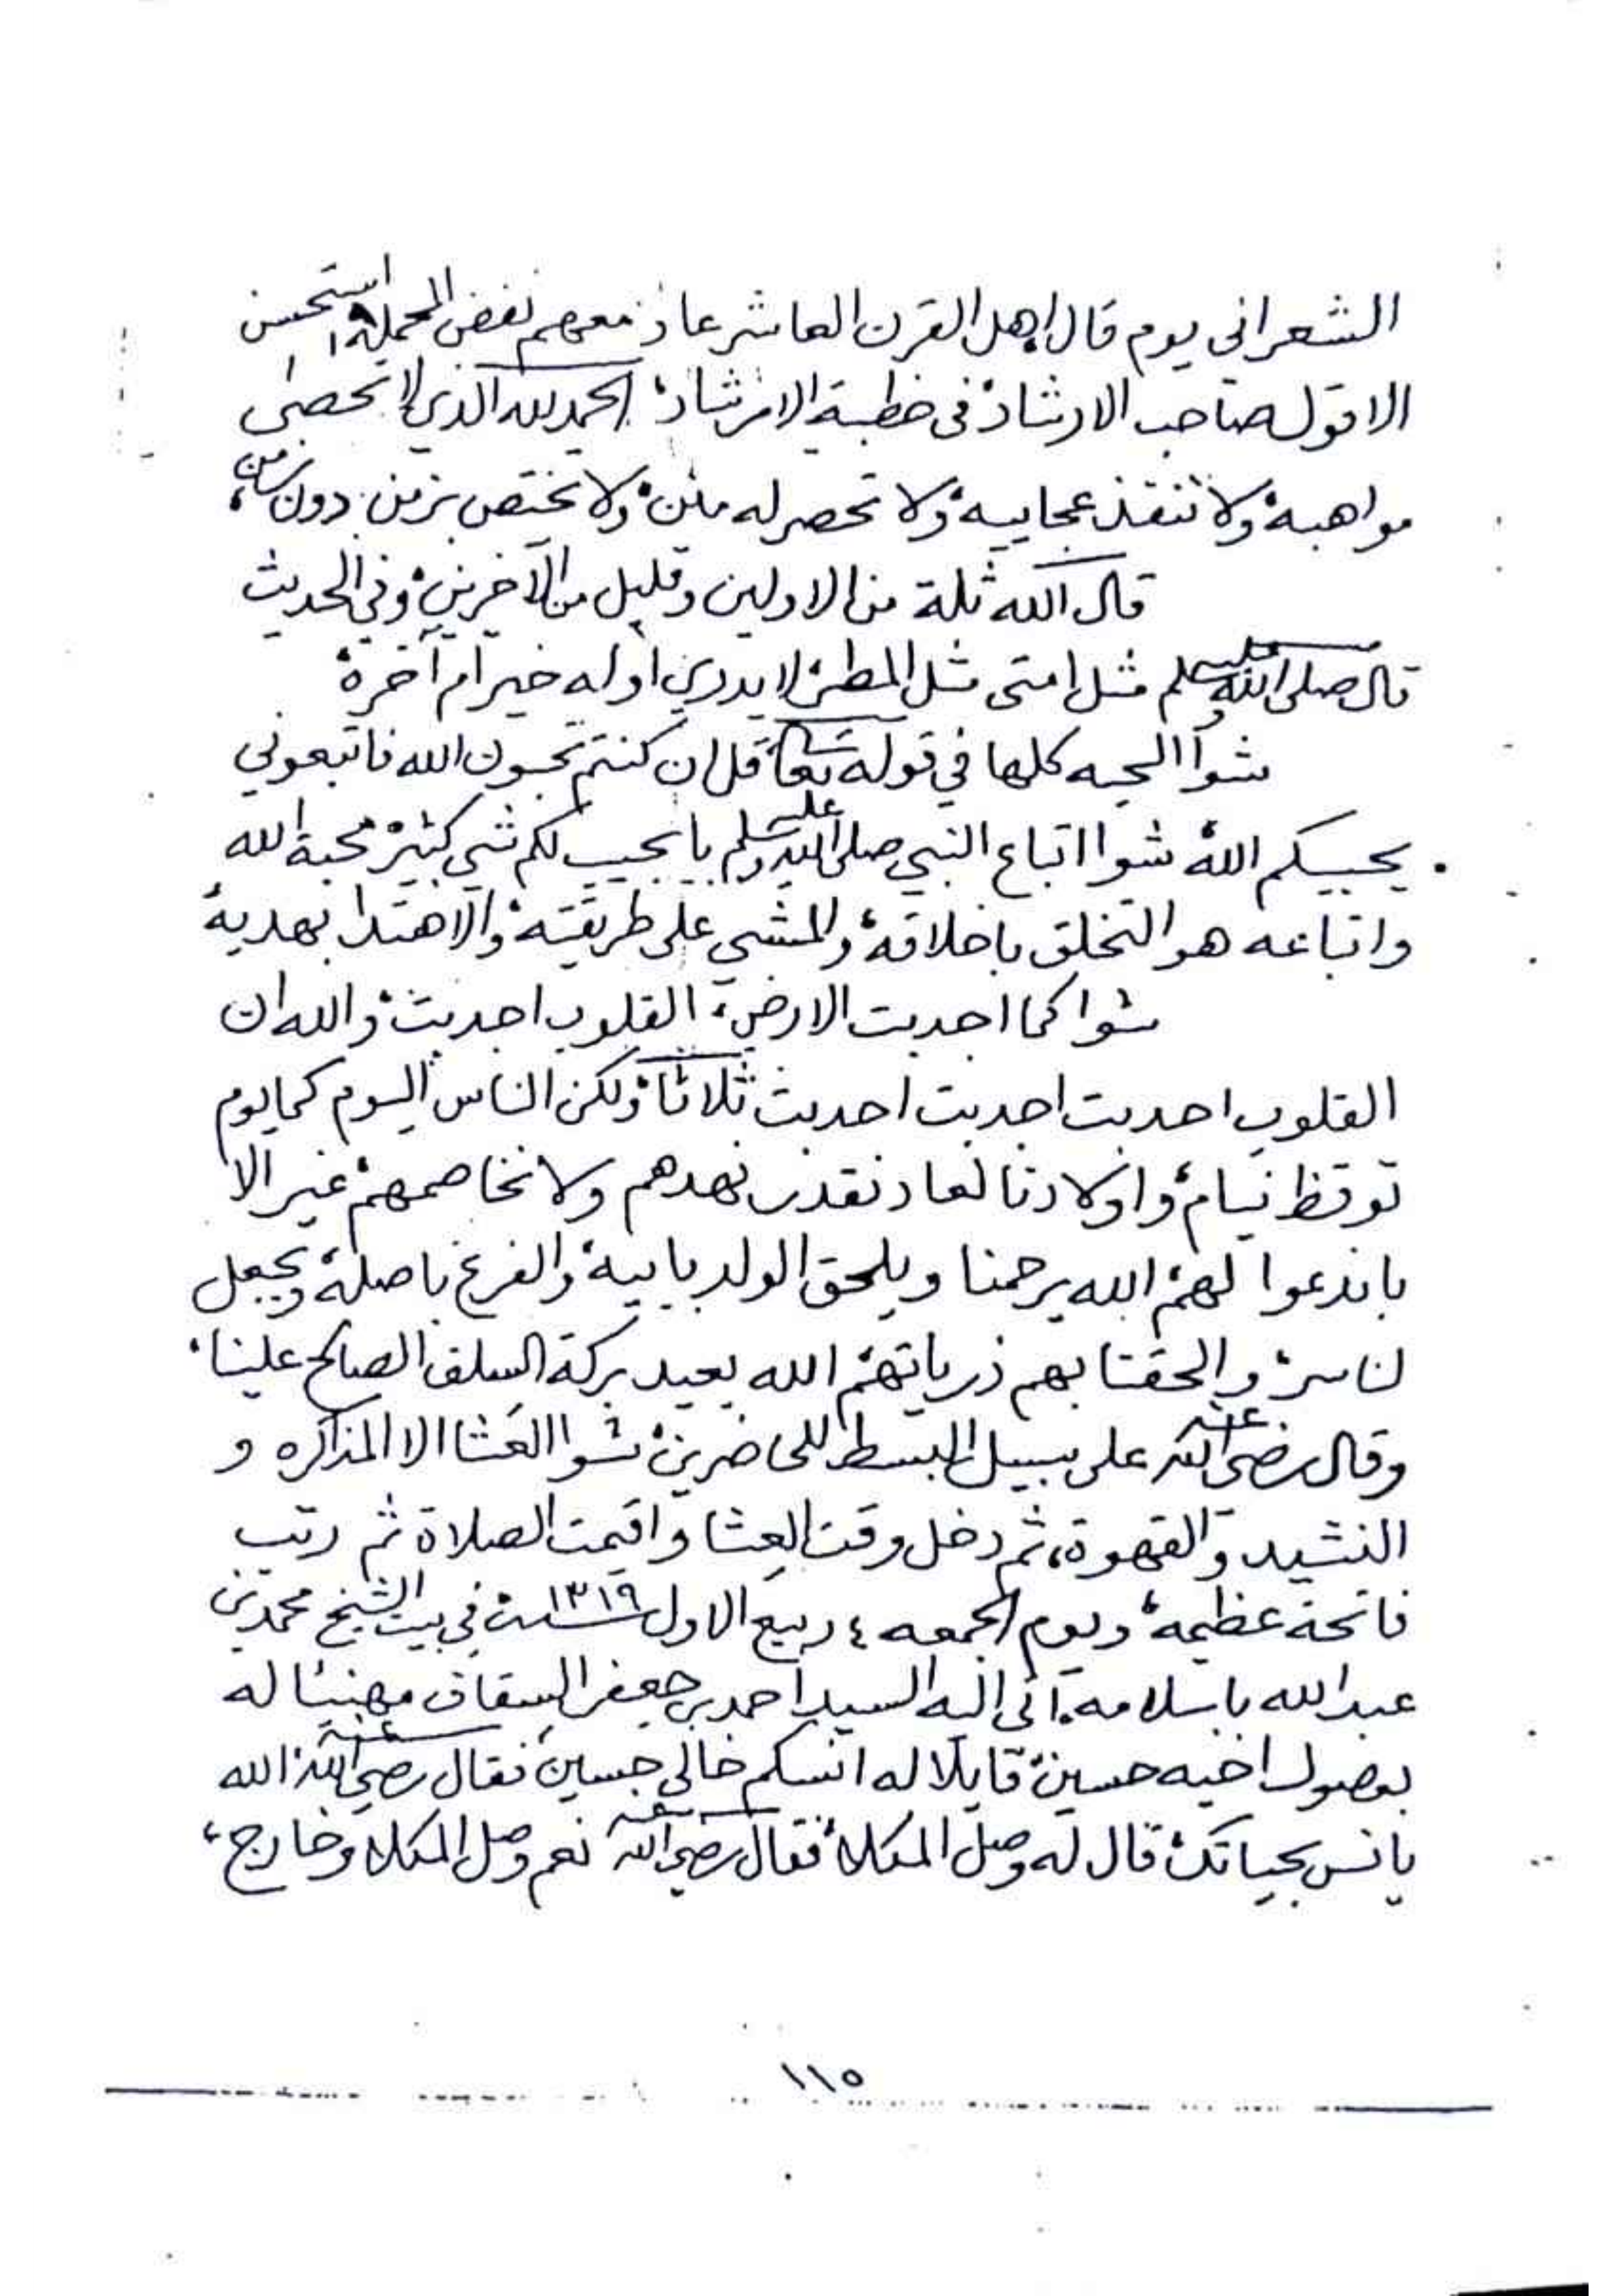 الشعراني يوم قال اهل القرن العاشر عاد معهم نفض المحملة، استحسن
الا قول صاحب الارشاد، في خطبة الارشاد، الحمد لله الذي لا تحصى
مواهبه، ولا تنفذ عجاييبه، ولا تحصر له منن، ولا تختص بزمن دون زمن،
قال الله ثلة من الاولين وقليل من الآخرين، وفي الحديث
قال صلى الله عليه وسلم مثل امتي مثل المطر، لا يدري اوله خير ام آخره،
شوا المحبه كلها في قوله تعا، قل ان كنتم تحبون الله فاتبعوني
يحببكم الله، شوا اتباع النبي صلى الله عليه وسلم با يجيب لكم شي كثير، محبة الله
واتباعه هو التخلق باخلاقه، والمشي على طريقته، والاهتدا بهديه،
شوا كما اجدبت الارض، القلوب اجدبت، والله ان
القلوب اجدبت اجدبت اجدبت ثلاثا، ولكن الناس اليوم كما يوم
توقظ نيام، واولادنا لعاد نقدر نهدهم ولا نخاصمهم، غير الا
باندعوا لهم، الله يرحمنا ويلحق الولد بابيه، والفرع باصله، ويجعل
لنا سر، والحقنا بهم ذرياتهم، الله يعيد بركة السلف الصالح علينا،
وقال رضي الله عنه على سبيل البسط للحاضرين، شوا العشا الا المذاكره و
النشيد والقهوة، ثم دخل وقت العشا واقيمت الصلاة ثم رتب
فاتحة عظيمة، ويوم الجمعه ٤ ربيع الاول سنة ١٣١٩ في بيت الشيخ محمد بن
عبدالله باسلامه، اتى اليه السيد احمد بن جعفر السقاف مهنيئا له
بوصول اخيه حسين، قايلا له انسكم خالي حسين، فقال رضي الله عنه الله
يانس بحياتك، قال له وصل المكلا، فقال رضي الله عنه نعم وصل المكلا وخارج،
١١٥